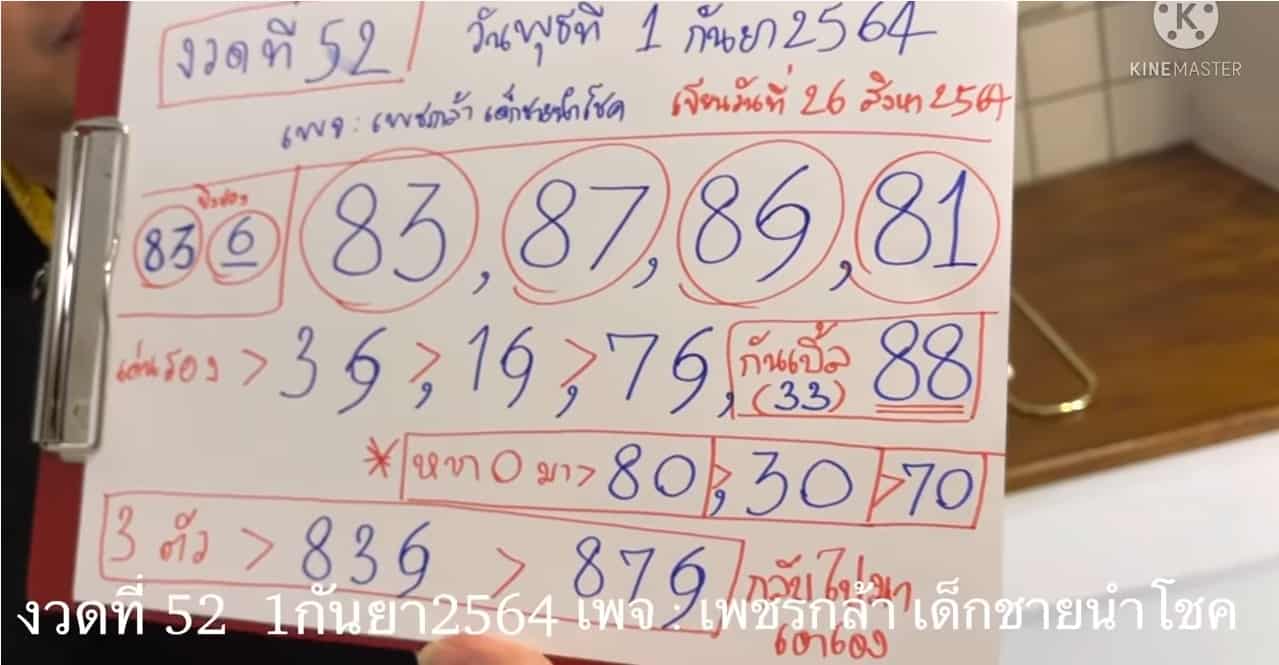 งวดที่ 52 วันพุธที่ 1 กันยา 2564
KINEMASTER
เพจ : เพชรกล้า เด็กชายนำโชค เขียนวันที่ 26 สิงหา 2564
83 6 83, 87, 89, 81
เด่นรอง > 39 >, 19 >, 79, กันเบิ้ล (33) 88
* หาก 0 มา > 80 >, 30 > 70
3 ตัว > 839 > 879 กลับไปมา
เอาเอง
งวดที่ 52 1กันยา2564 เพจ : เพชรกล้า เด็กชายนำโชค